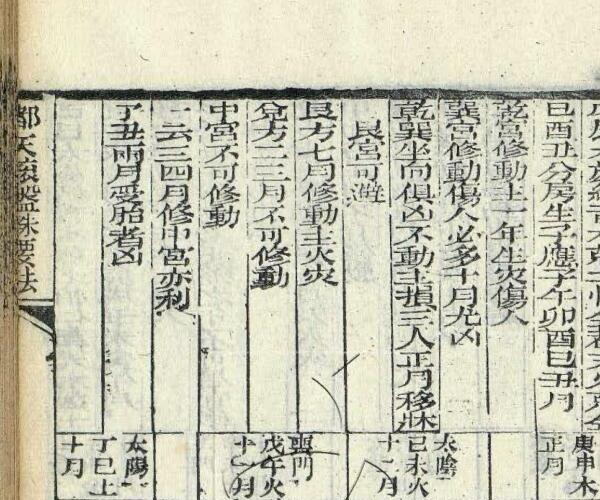 巳酉丑分房生子應子午卯酉巳丑月
乾宮修動主一年生災傷人
巽宮修動傷人必多十月尤凶
乾巽坐向俱凶不動主損三人正月移牀
艮宮可避
艮方七月修動主火災
兌方二三月不可修動
中宮不可修動
一六三四月修中宮亦利
丁丑兩月受胎者凶
庚申木
正月
太陰
己未火
十一月
喪門
戊午火
太陽
丁巳土
十月
都天
要法